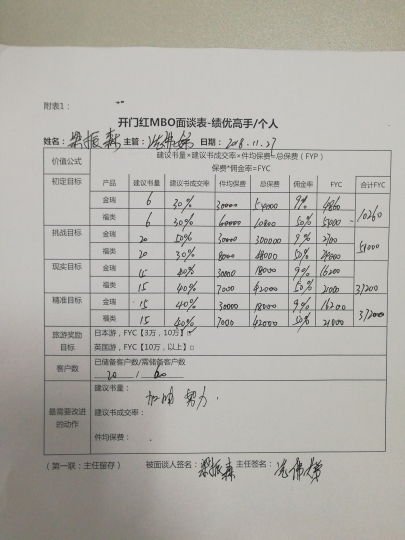 附表1：
开门红MBO面谈表-绩优高手/个人
姓名：梁振森 主管： 日期：2018.11.27
价值公式 建议书量×建议书成交率×件均保费=总保费（FYP）
保费*佣金率=FYC
初定目标 产品 建议书量 建议书成交率 件均保费 总保费 佣金率 FYC 合计FYC
金瑞 6 30% 30000 54000 9% 4860 10260
福类 6 30% 6000 10800 50% 5400
挑战目标 金瑞 20 50% 30000 300000 9% 2700 51000
福类 20 30% 8000 48000 50% 24000
现实目标 金瑞 15 40% 30000 18000 9% 16200 37200
福类 15 40% 7000 42000 50% 21000
精准目标 金瑞 15 40% 30000 18000 9% 16200 37200
福类 15 40% 7000 42000 50% 21000
旅游奖励目标 日本游，FYC【3万，10万）
英国游，FYC【10万，以上】□
客户数 已储备客户数/需储备客户数
20 / 60
最需要改进的动作 建议书量：
加油 努力.
建议书成交率：
件均保费：
（第一联：主任留存） 被面谈人签名：梁振森 主任签名：